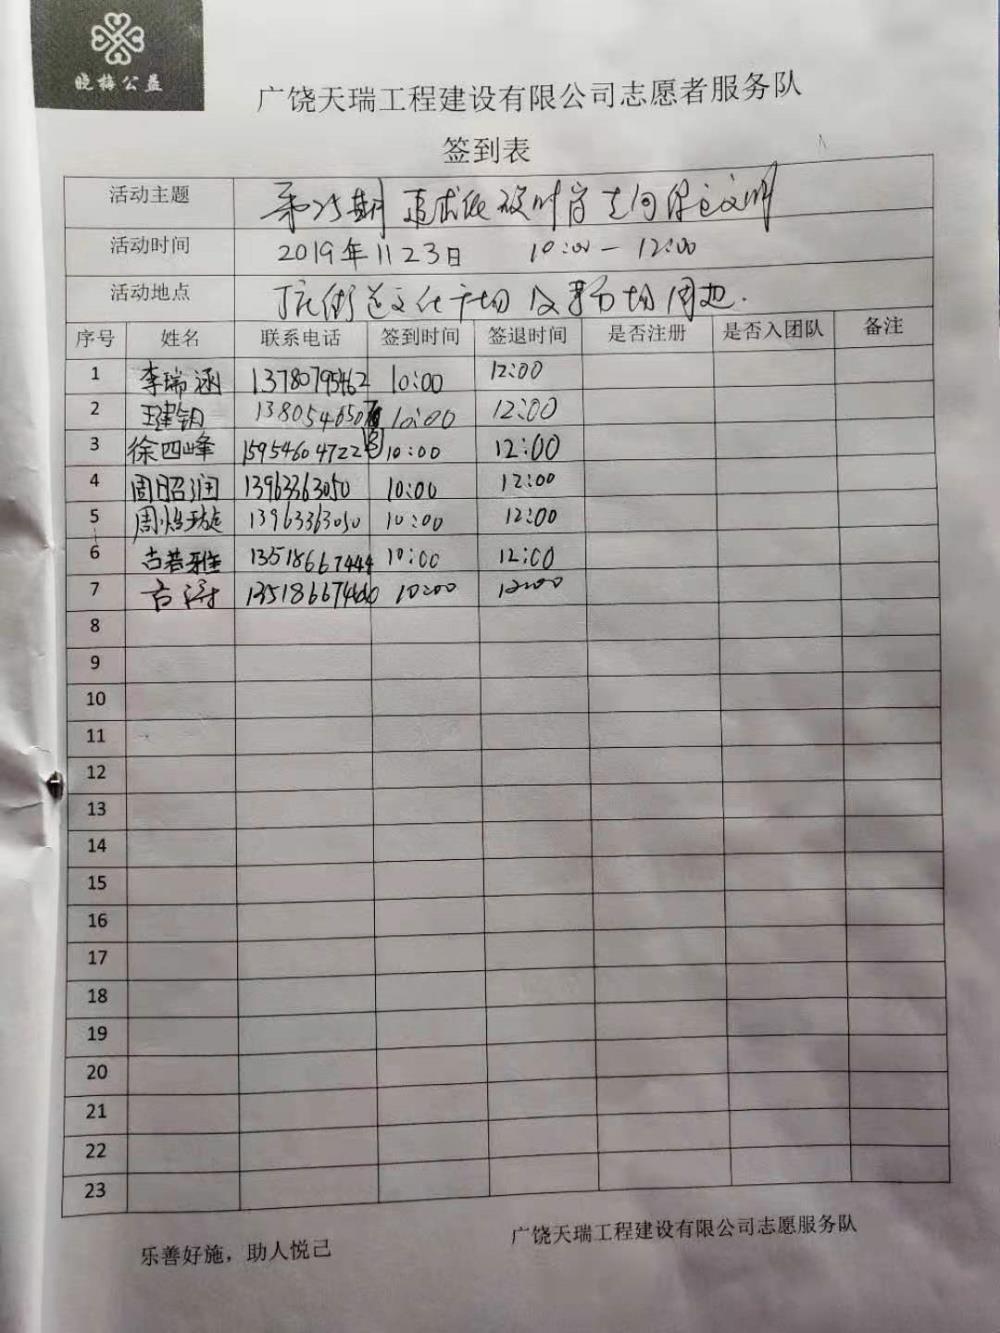 晓梅公益
广饶天瑞工程建设有限公司志愿者服务队
签到表
活动主题 第25期
活动时间 2019年11 23日 10:00-12:00
活动地点 街道文化广场及 市场周边.
序号 姓名 联系电话 签到时间 签退时间 是否注册 是否入团队 备注
1 李瑞涵 13780795462 10:00 12:00
2 王建钥 10:00 12:00
3 徐四峰 15954604722 10:00 12:00
4 周昭润 13963363050 10:00 12:00
5 13963363050 10:00 12:00
6 古若雅 13518667444 10:00 12:00
7 10:00 12:00
8
9
10
11
12
13
14
15
16
17
18
19
20
21
22
23
乐善好施，助人悦己
广饶天瑞工程建设有限公司志愿服务队